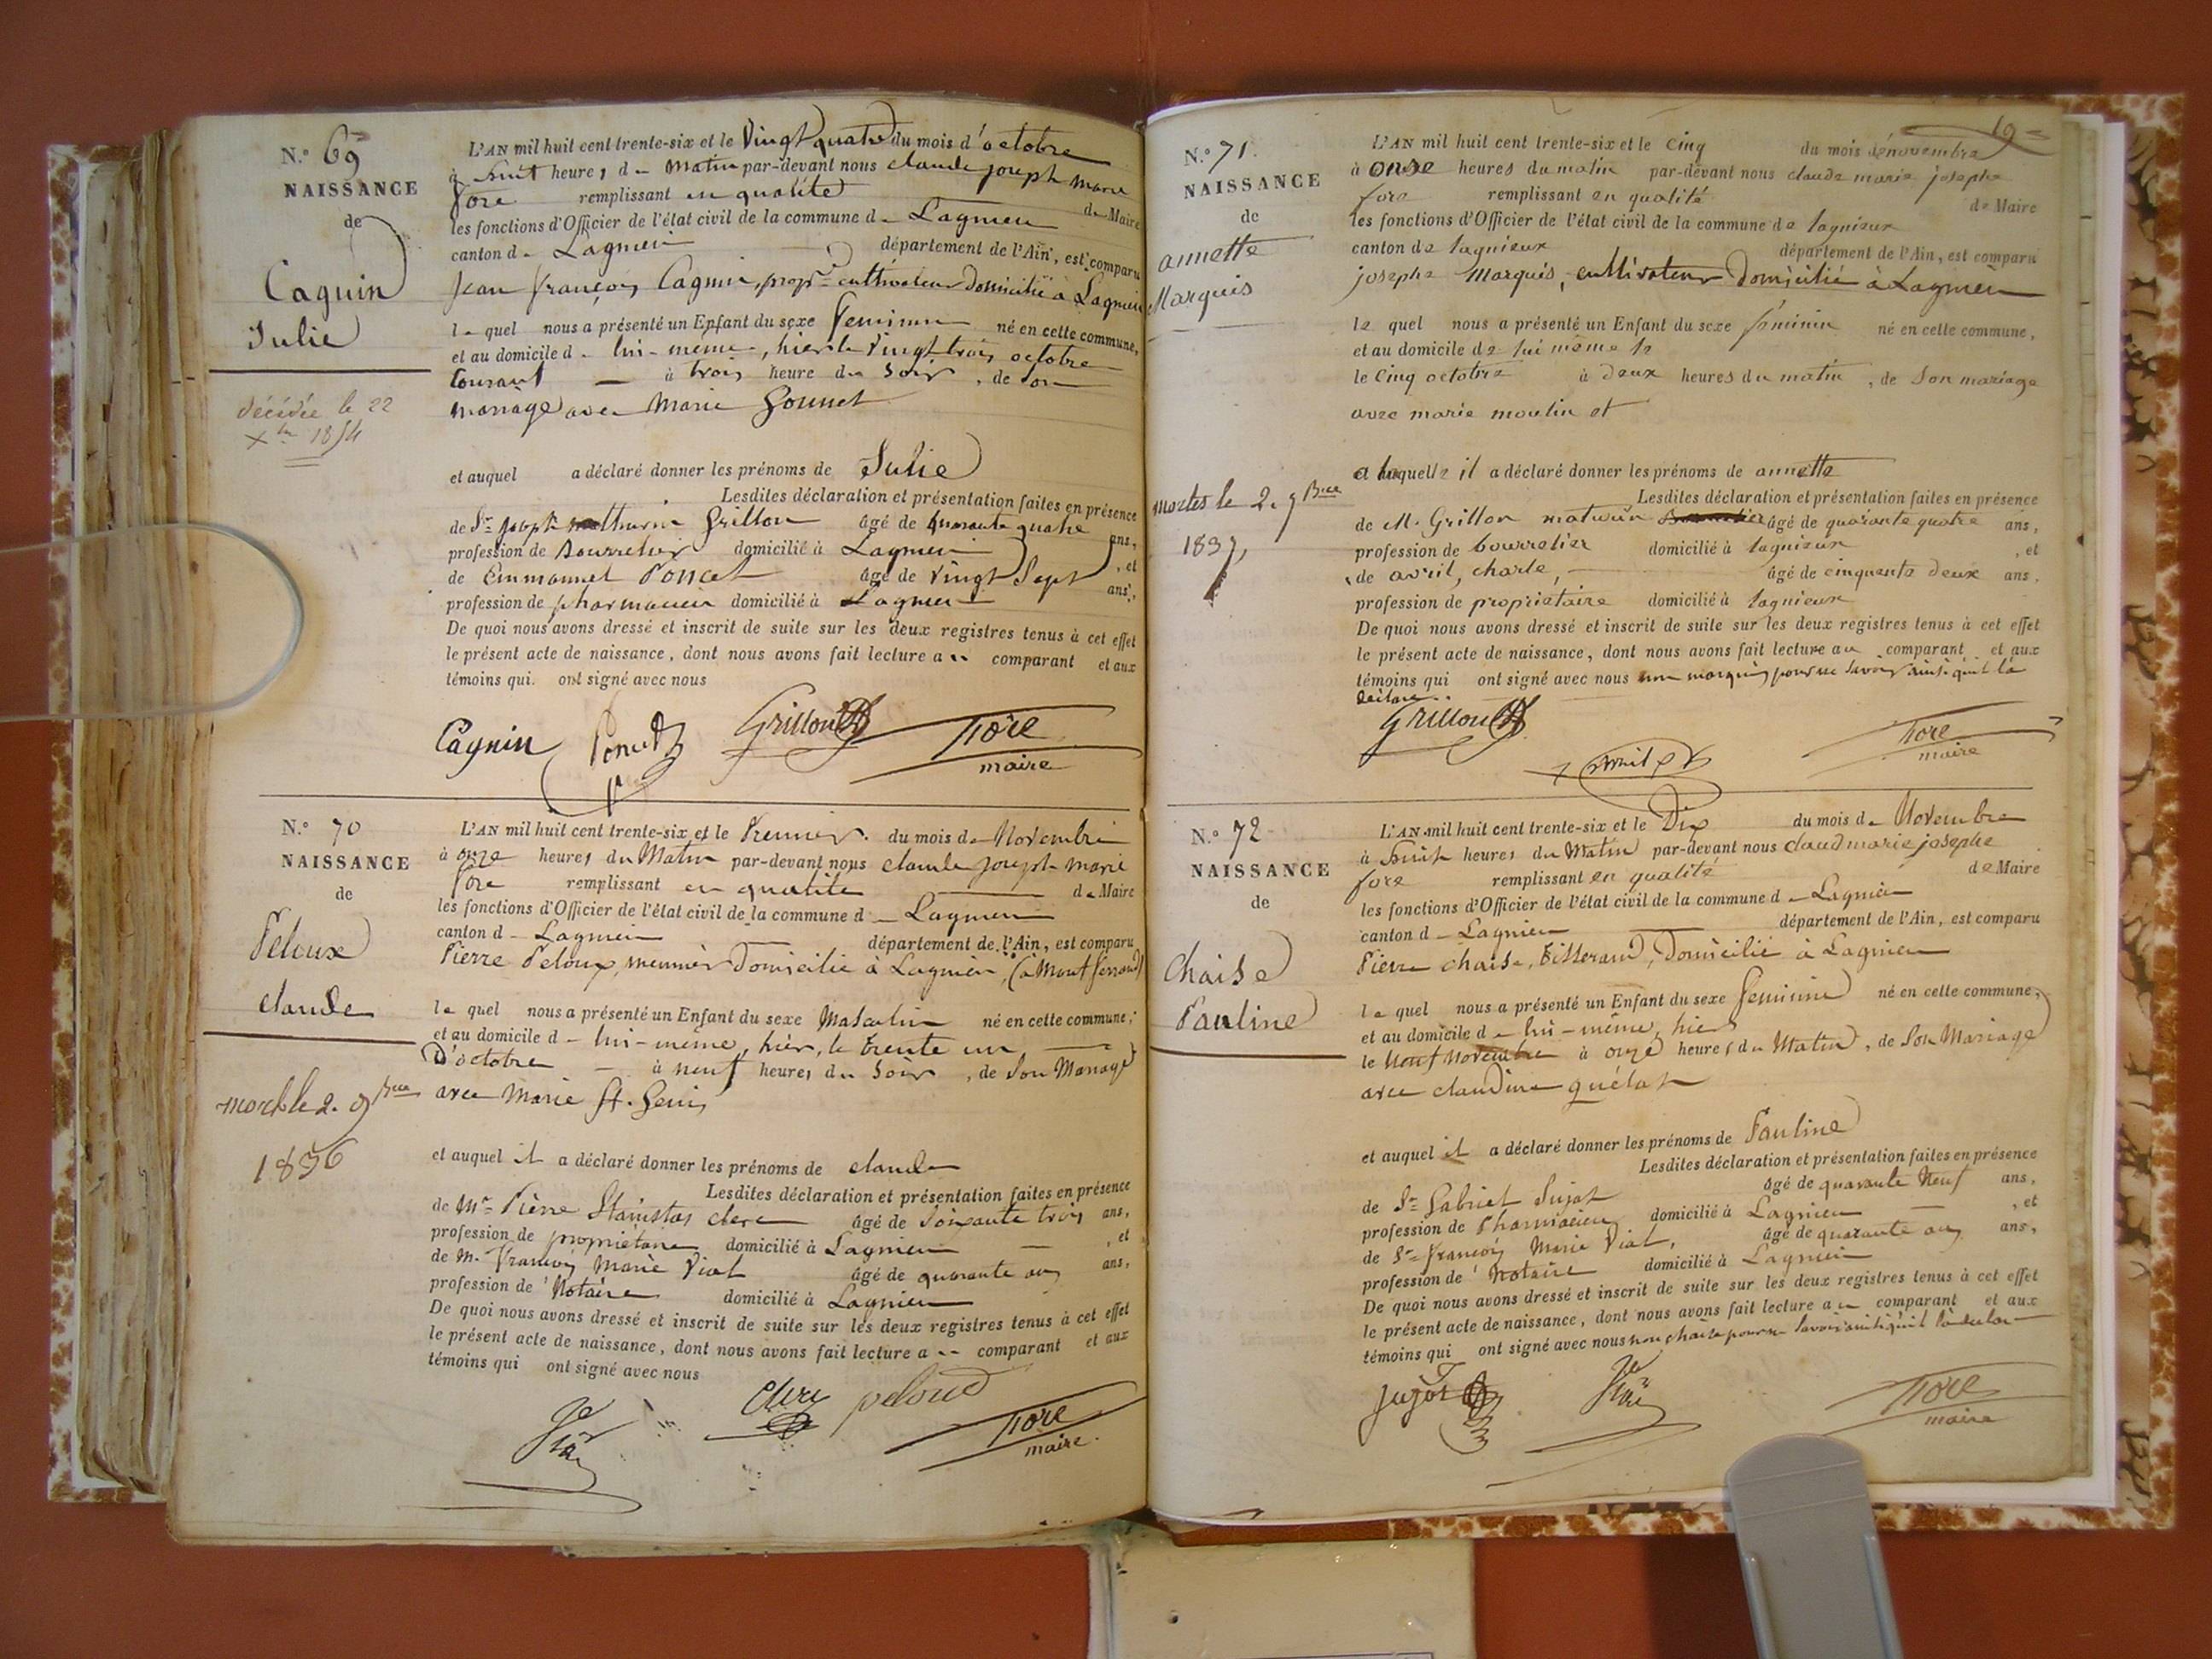 N.° 69
NAISSANCE
de
Cagnin
Julie
décédée le 22
Xbre 1854
L'AN mil huit cent trente-six et le Vingt quatre du mois d'octobre
à huit heures du matin par-devant nous claude joseph marie
fore remplissant en qualité de Maire
les fonctions d'Officier de l'état civil de la commune de Lagnieu
canton de Lagnieu département de l'Ain, est comparu
Jean françois Cagnin, propre cultivateur domicilié à Lagnieu
le quel nous a présenté un Enfant du sexe feminin né en cette commune,
et au domicile de lui-même, hier le vingt trois octobre
Courant à trois heure du Soir, de son
mariage avec Marie Gonnet
et auquel a déclaré donner les prénoms de Julie
Lesdites déclaration et présentation faites en présence
de Sr joseph mathurin Grillon âgé de quarante quatre ans,
profession de Bourrelier domicilié à Lagnieu, et
de Emmanuel Poncet âgé de vingt Sept ans,
profession de pharmacien domicilié à Lagnieu
De quoi nous avons dressé et inscrit de suite sur les deux registres tenus à cet effet
le présent acte de naissance, dont nous avons fait lecture au comparant et aux
témoins qui ont signé avec nous
Cagnin Poncet Grillon fore
maire
N.° 70
NAISSANCE
de
Peloux
claude
mort le 2. 9bre
1836
L'AN mil huit cent trente-six et le Premier du mois de Novembre
à onze heures du Matin par-devant nous claude joseph marie
fore remplissant en qualité de Maire
les fonctions d'Officier de l'état civil de la commune de Lagnieu
canton de Lagnieu département de l'Ain, est comparu
Pierre Peloux, meunier Domicilié à Lagnieu, (à Mont ferrand)
le quel nous a présenté un Enfant du sexe Masculin né en cette commune,
et au domicile de lui-même, hier, le trente un
D'octobre à neuf heures du Soir, de Son Mariage
avec Marie St. Genis
et auquel il a déclaré donner les prénoms de claude
Lesdites déclaration et présentation faites en présence
de Mr Pierre Stanislas clerc âgé de Soixante trois ans,
profession de propriétaire domicilié à Lagnieu, et
de M. françois Marie Viat âgé de quarante ans,
profession de Notaire domicilié à Lagnieu
De quoi nous avons dressé et inscrit de suite sur les deux registres tenus à cet effet
le présent acte de naissance, dont nous avons fait lecture au comparant et aux
témoins qui ont signé avec nous
Clerc peloud fore
maire.
19
N.° 71.
NAISSANCE
de
annette
Marquis
mortes le 2. 9bre
1837,
L'AN mil huit cent trente-six et le cinq du mois de novembre
à onse heures du matin par-devant nous claude marie josephe
fore remplissant en qualité de Maire
les fonctions d'Officier de l'état civil de la commune de lagnieux
canton de lagnieux département de l'Ain, est comparu
josephe Marquis, cultivateur Domicilié à Lagnieu
le quel nous a présenté un Enfant du sexe féminin né en cette commune,
et au domicile de lui même le
le cinq octobre à deux heures du matin, de son mariage
avec marie moulin et
a laquelle il a déclaré donner les prénoms de annette
Lesdites déclaration et présentation faites en présence
de M. Grillon maturin âgé de quarante quatre ans,
profession de bourrelier domicilié à lagnieux, et
de avril, charle, âgé de cinquente deux ans,
profession de proprietaire domicilié à lagnieux
De quoi nous avons dressé et inscrit de suite sur les deux registres tenus à cet effet
le présent acte de naissance, dont nous avons fait lecture au comparant et aux
témoins qui ont signé avec nous non marquis pour ne savoir ainsi qu'il l'a
déclaré.
Grillon avril fore
maire
N.° 72
NAISSANCE
de
Chaise
Pauline
L'AN mil huit cent trente-six et le Dix du mois de Novembre
à huit heures du Matin par-devant nous claud marie josephe
fore remplissant en qualité de Maire
les fonctions d'Officier de l'état civil de la commune de Lagnieu
canton de Lagnieu département de l'Ain, est comparu
Pierre chaise, tisserand, Domicilié à Lagnieu
le quel nous a présenté un Enfant du sexe feminin né en cette commune,
et au domicile de lui-même, hier
le Neuf Novembre à onze heures du Matin, de Son Mariage
avec claudine quélat
et auquel il a déclaré donner les prénoms de Pauline
Lesdites déclaration et présentation faites en présence
de Sr Gabriel Jujat âgé de quarante Neuf ans,
profession de Pharmacien domicilié à Lagnieu, et
de Sr françois Marie Viat, âgé de quarante ans,
profession de Notaire domicilié à Lagnieu
De quoi nous avons dressé et inscrit de suite sur les deux registres tenus à cet effet
le présent acte de naissance, dont nous avons fait lecture au comparant et aux
témoins qui ont signé avec nous non chaise pour ne Savoir ainsi qu'il l'a déclaré
Jujat fore
maire